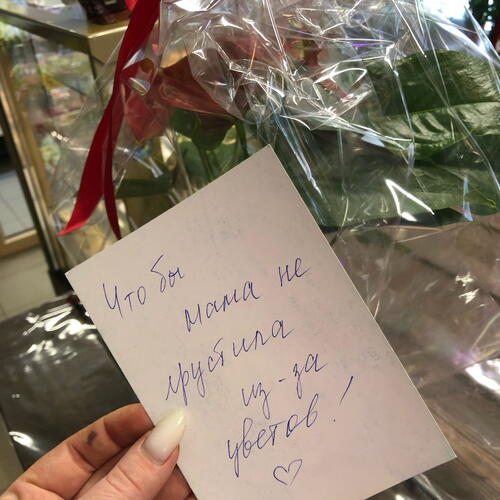 Что бы
мама не
грустила
из-за
цветов!